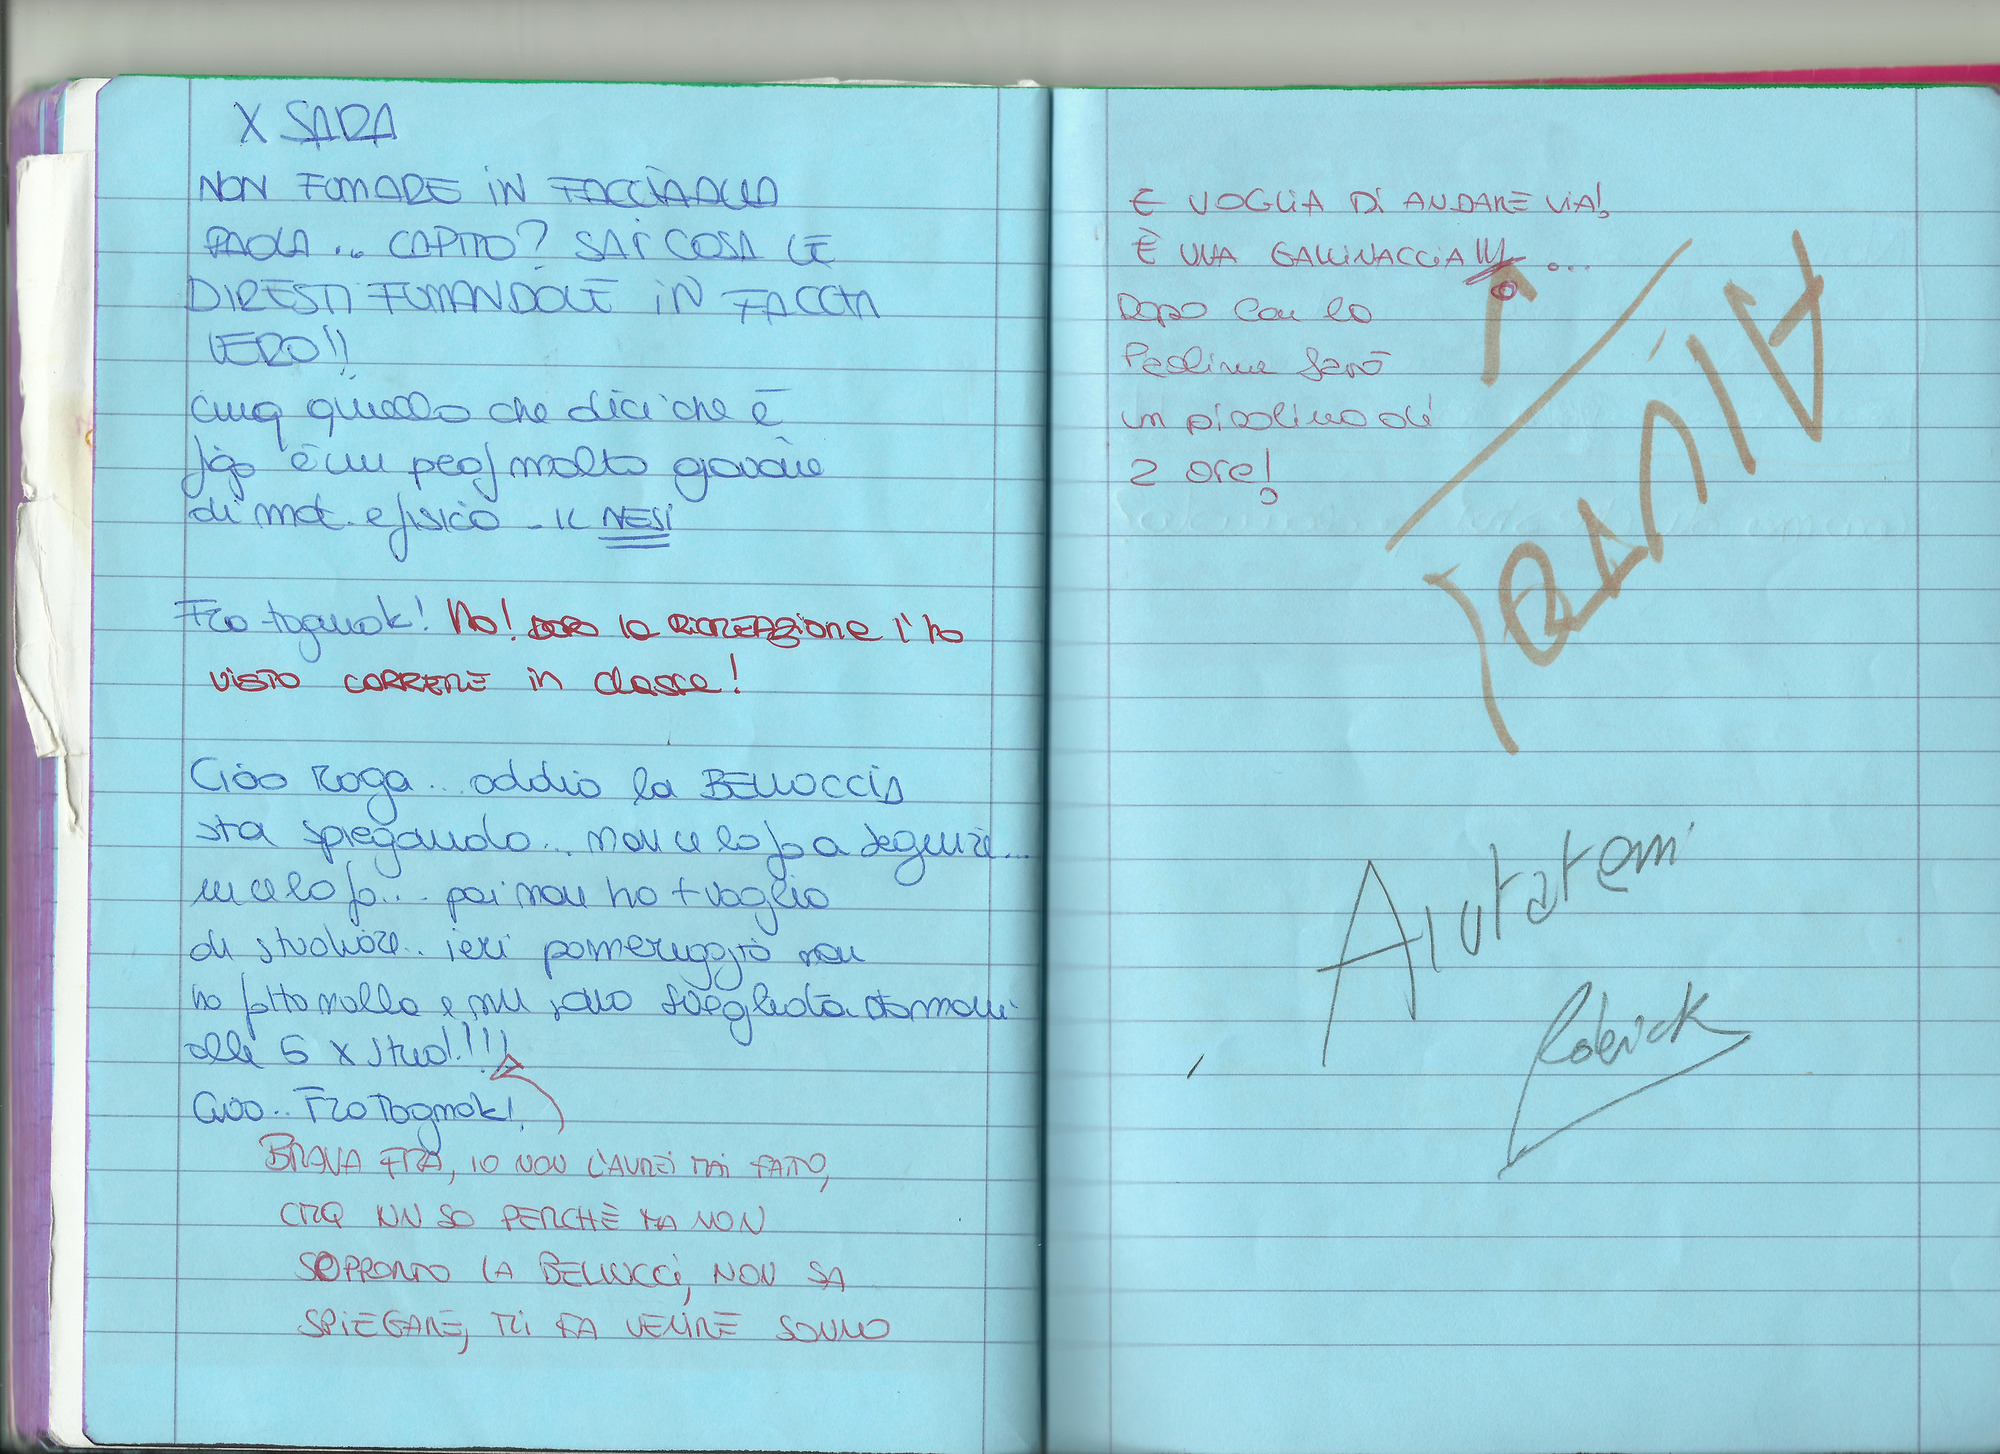 X SARA
NON FUMARE IN FACCIA ALLA
PAOLA... CAPITO? SAI COSA LE
DIRESTI FUMANDOLE IN FACCIA
VERO!!
cmq quello che dici che è
figo è un prof molto giovane
di mat. e fisica - IL NESI
Fra tognak! No! DOPO la RICREAZIONE l'ho
VISTO CORRERE in classe!
Ciao raga... oddio la BELLUCCI
sta spiegando... non ce la fo a seguire...
un ce la fo... poi non ho + voglia
di studiare.. ieri pomeriggio non
ho fatto nulla e mi sono svegliata stamani
alle 5 x stud.!!!
Ciao.. Fra Tognak!
BRAVA FRA, IO NON L'AVREI MAI FATTO,
CMQ NN SO PERCHÈ MA NON
SOPPORTO LA BELLUCCI, NON SA
SPIEGARE, TI FA VENIRE SONNO
E VOGLIA DI ANDARE VIA!
È UNA GALLINACCIA!!! ...
Dopo con la
Paolina farò
un pisolino di
2 ore!
Aiutatemi